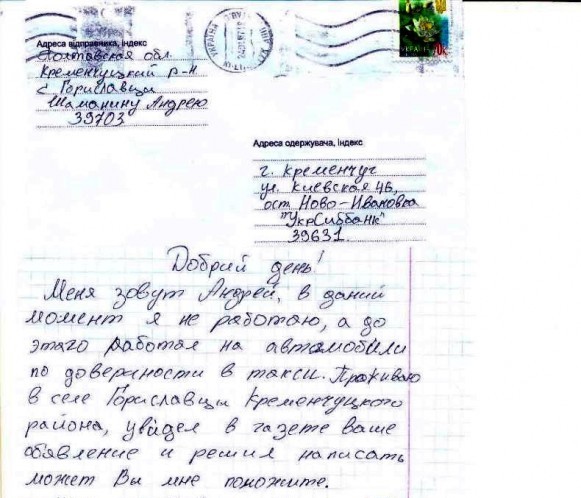 УКРАЇНА
УКРАЇНА 70к
Адреса відправника, індекс
Полтавская обл.
Кременчуцкий р-н
с Гориславцы
Шаманину Андрею
39703
Адреса одержувача, індекс
г. Кременчуг
ул. Киевская 4б,
ост Ново-Ивановка
"УкрСиббанк"
39631.
Добрий день!
Меня зовут Андрей, в даний
момент я не работаю, а до
этаго работал на автомобили
по доверности в такси. Проживаю
в селе Гориславцы Кременчуцкого
района, увидел в газете ваше
обявление и решил написать
может Вы мне поможите.